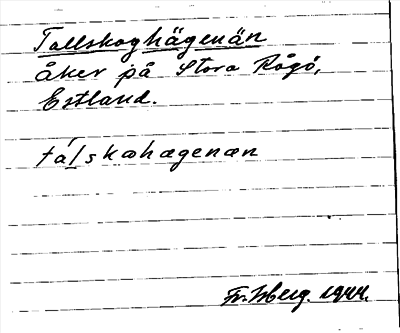 Tallskoghägenän
åker på Stora Rågö,
Estland.
tálskæhægenæn
Fr. Isberg. 1944.